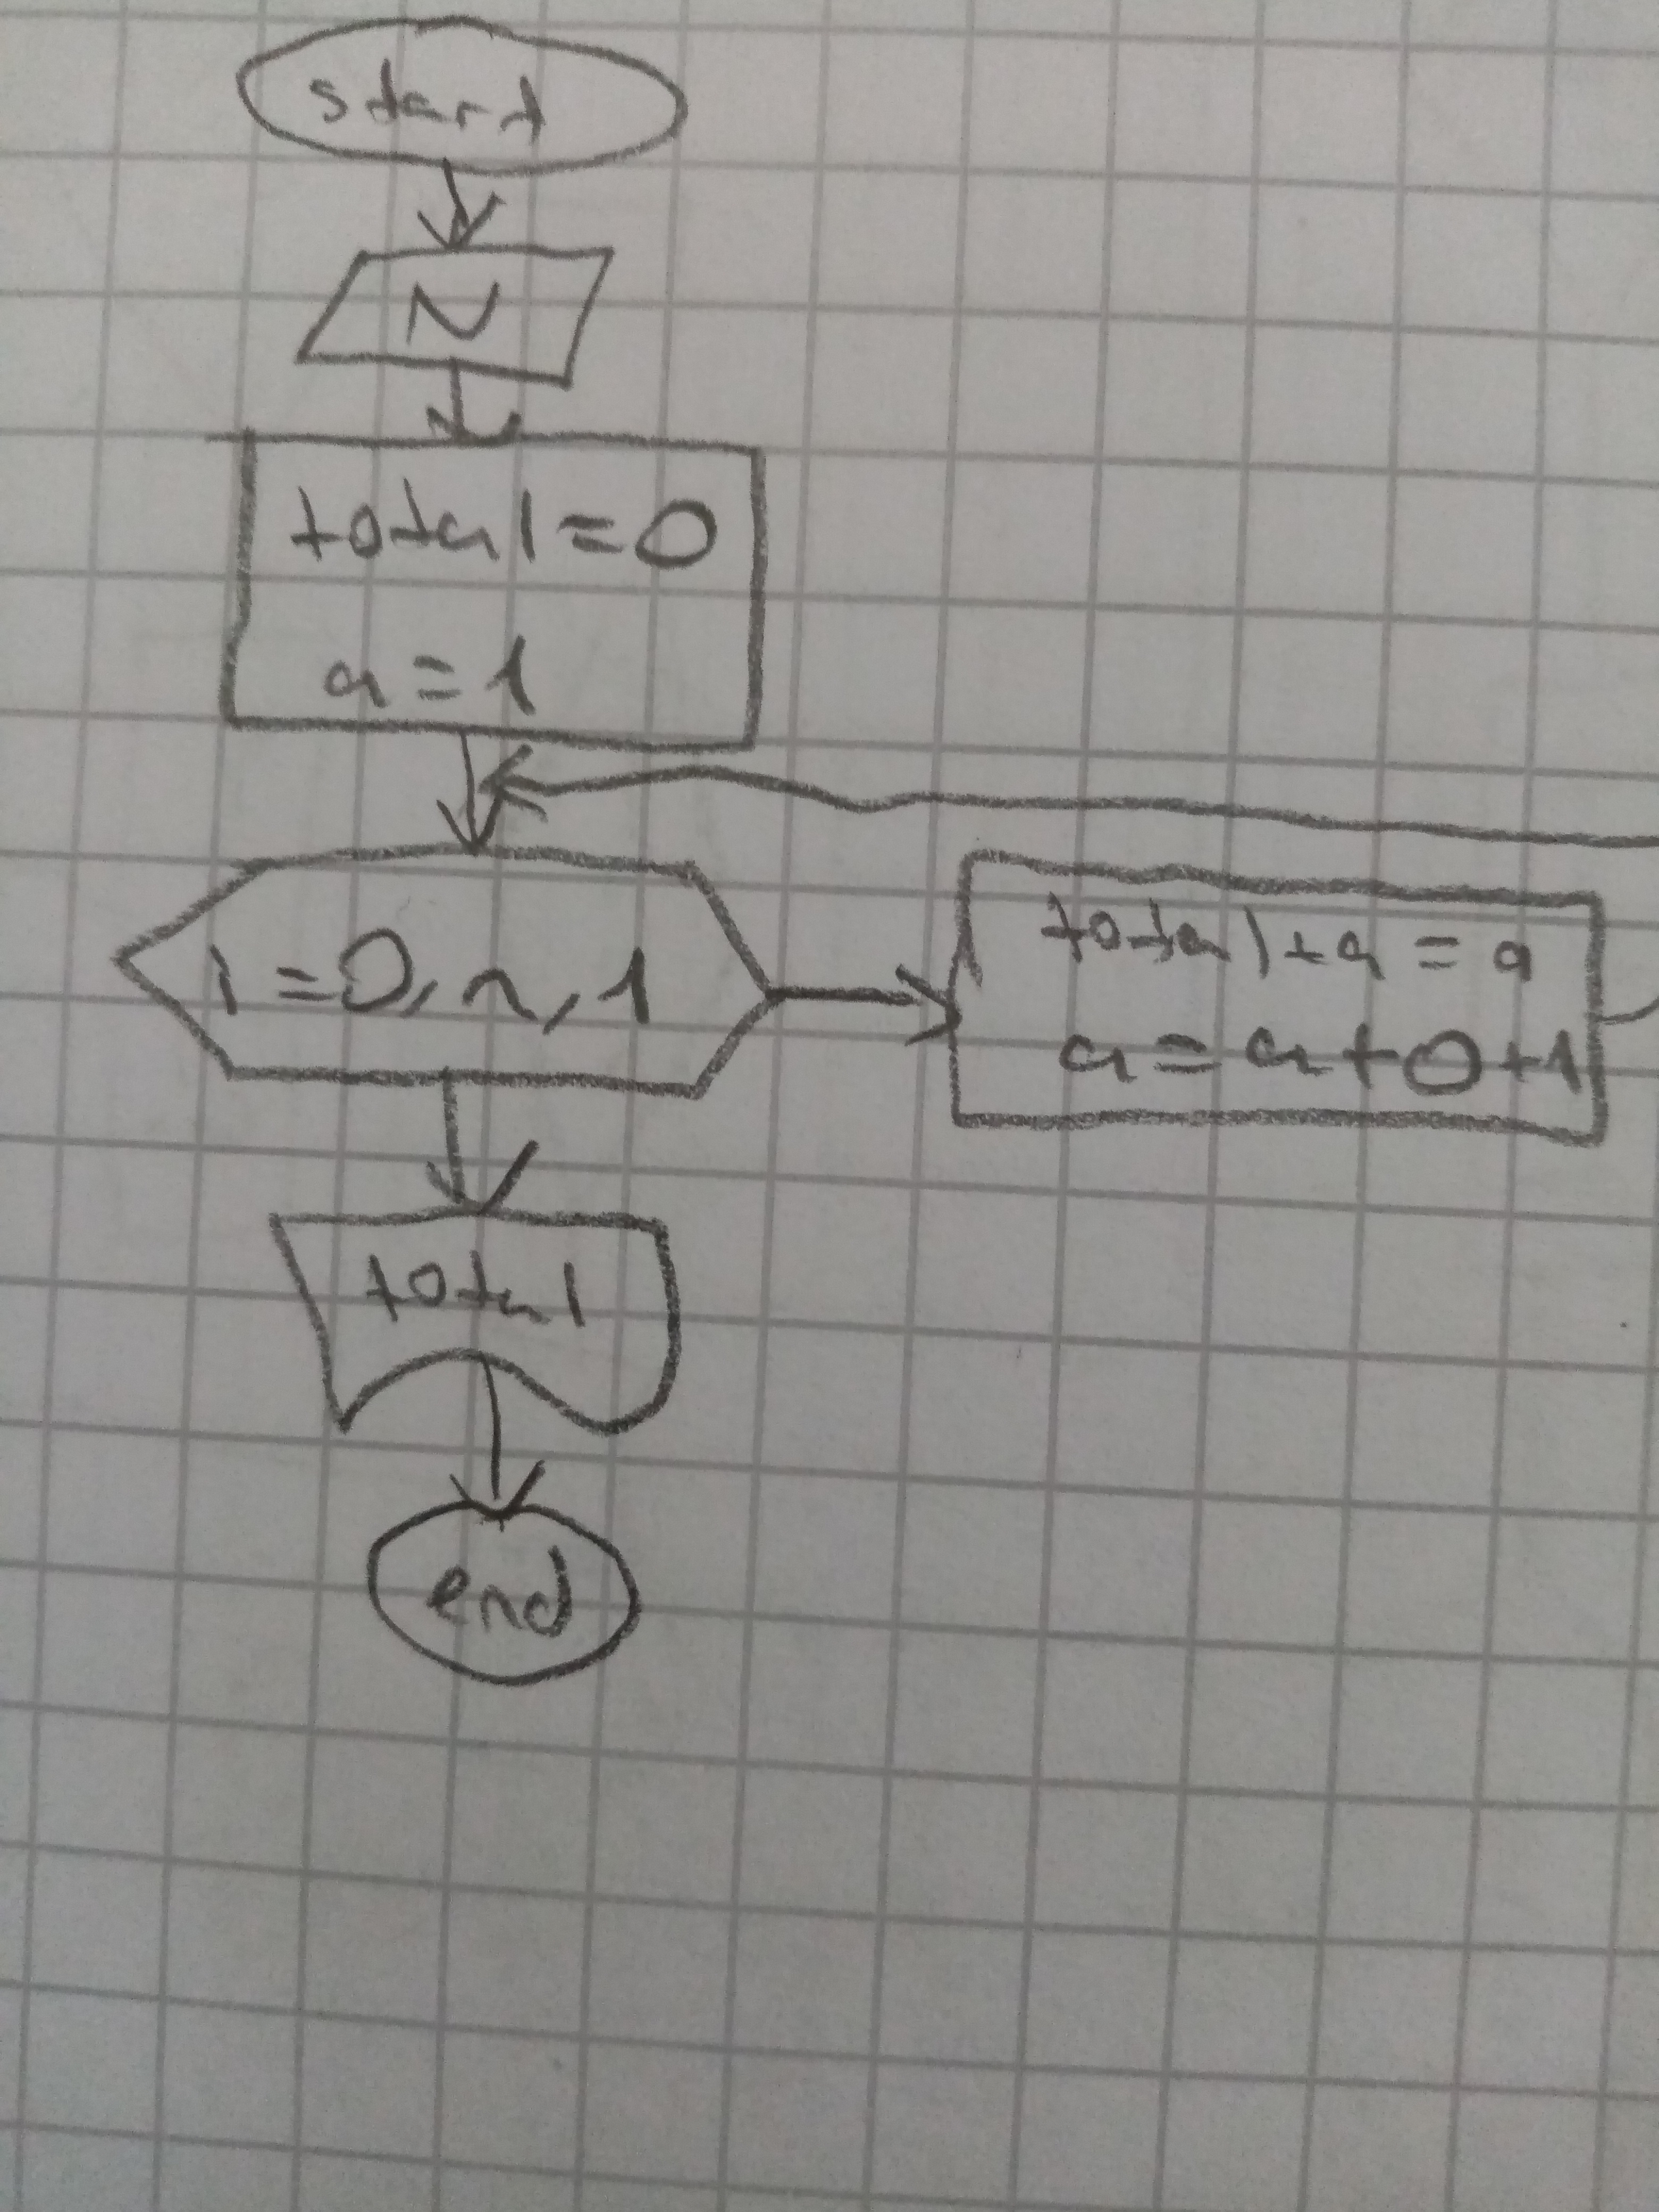 start
N
total=0
a=1
i=0,n,1
total+a=a
a=a+0+1
total
end